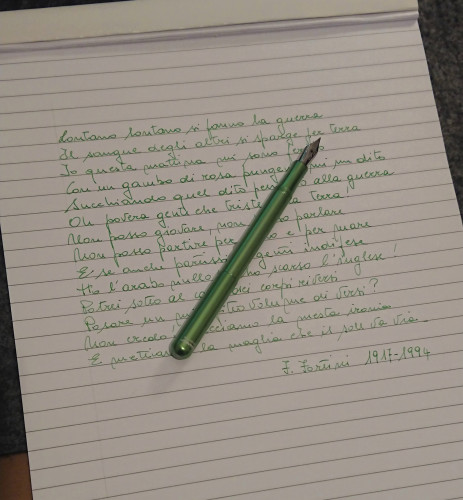 Lontano lontano si fanno la guerra
Il sangue degli altri si sparge per terra
Io questa mattina mi sono
Con un gambo di rosa, pungendomi un dito
Succhiando quel dito alla guerra
Oh povera gente che triste la terra!
Non posso giovare, non parlare
Non posso partire per o per mare
E se anche potessi genti indifese
Ho l'arabo nullo scarso l'inglese!
Potrei sotto al dei corpi riversi
Posare un mio volume di versi?
Non credo, la mesta ironia
E mettiamo la maglia che il sole va via.
F. Fortini 1917-1994